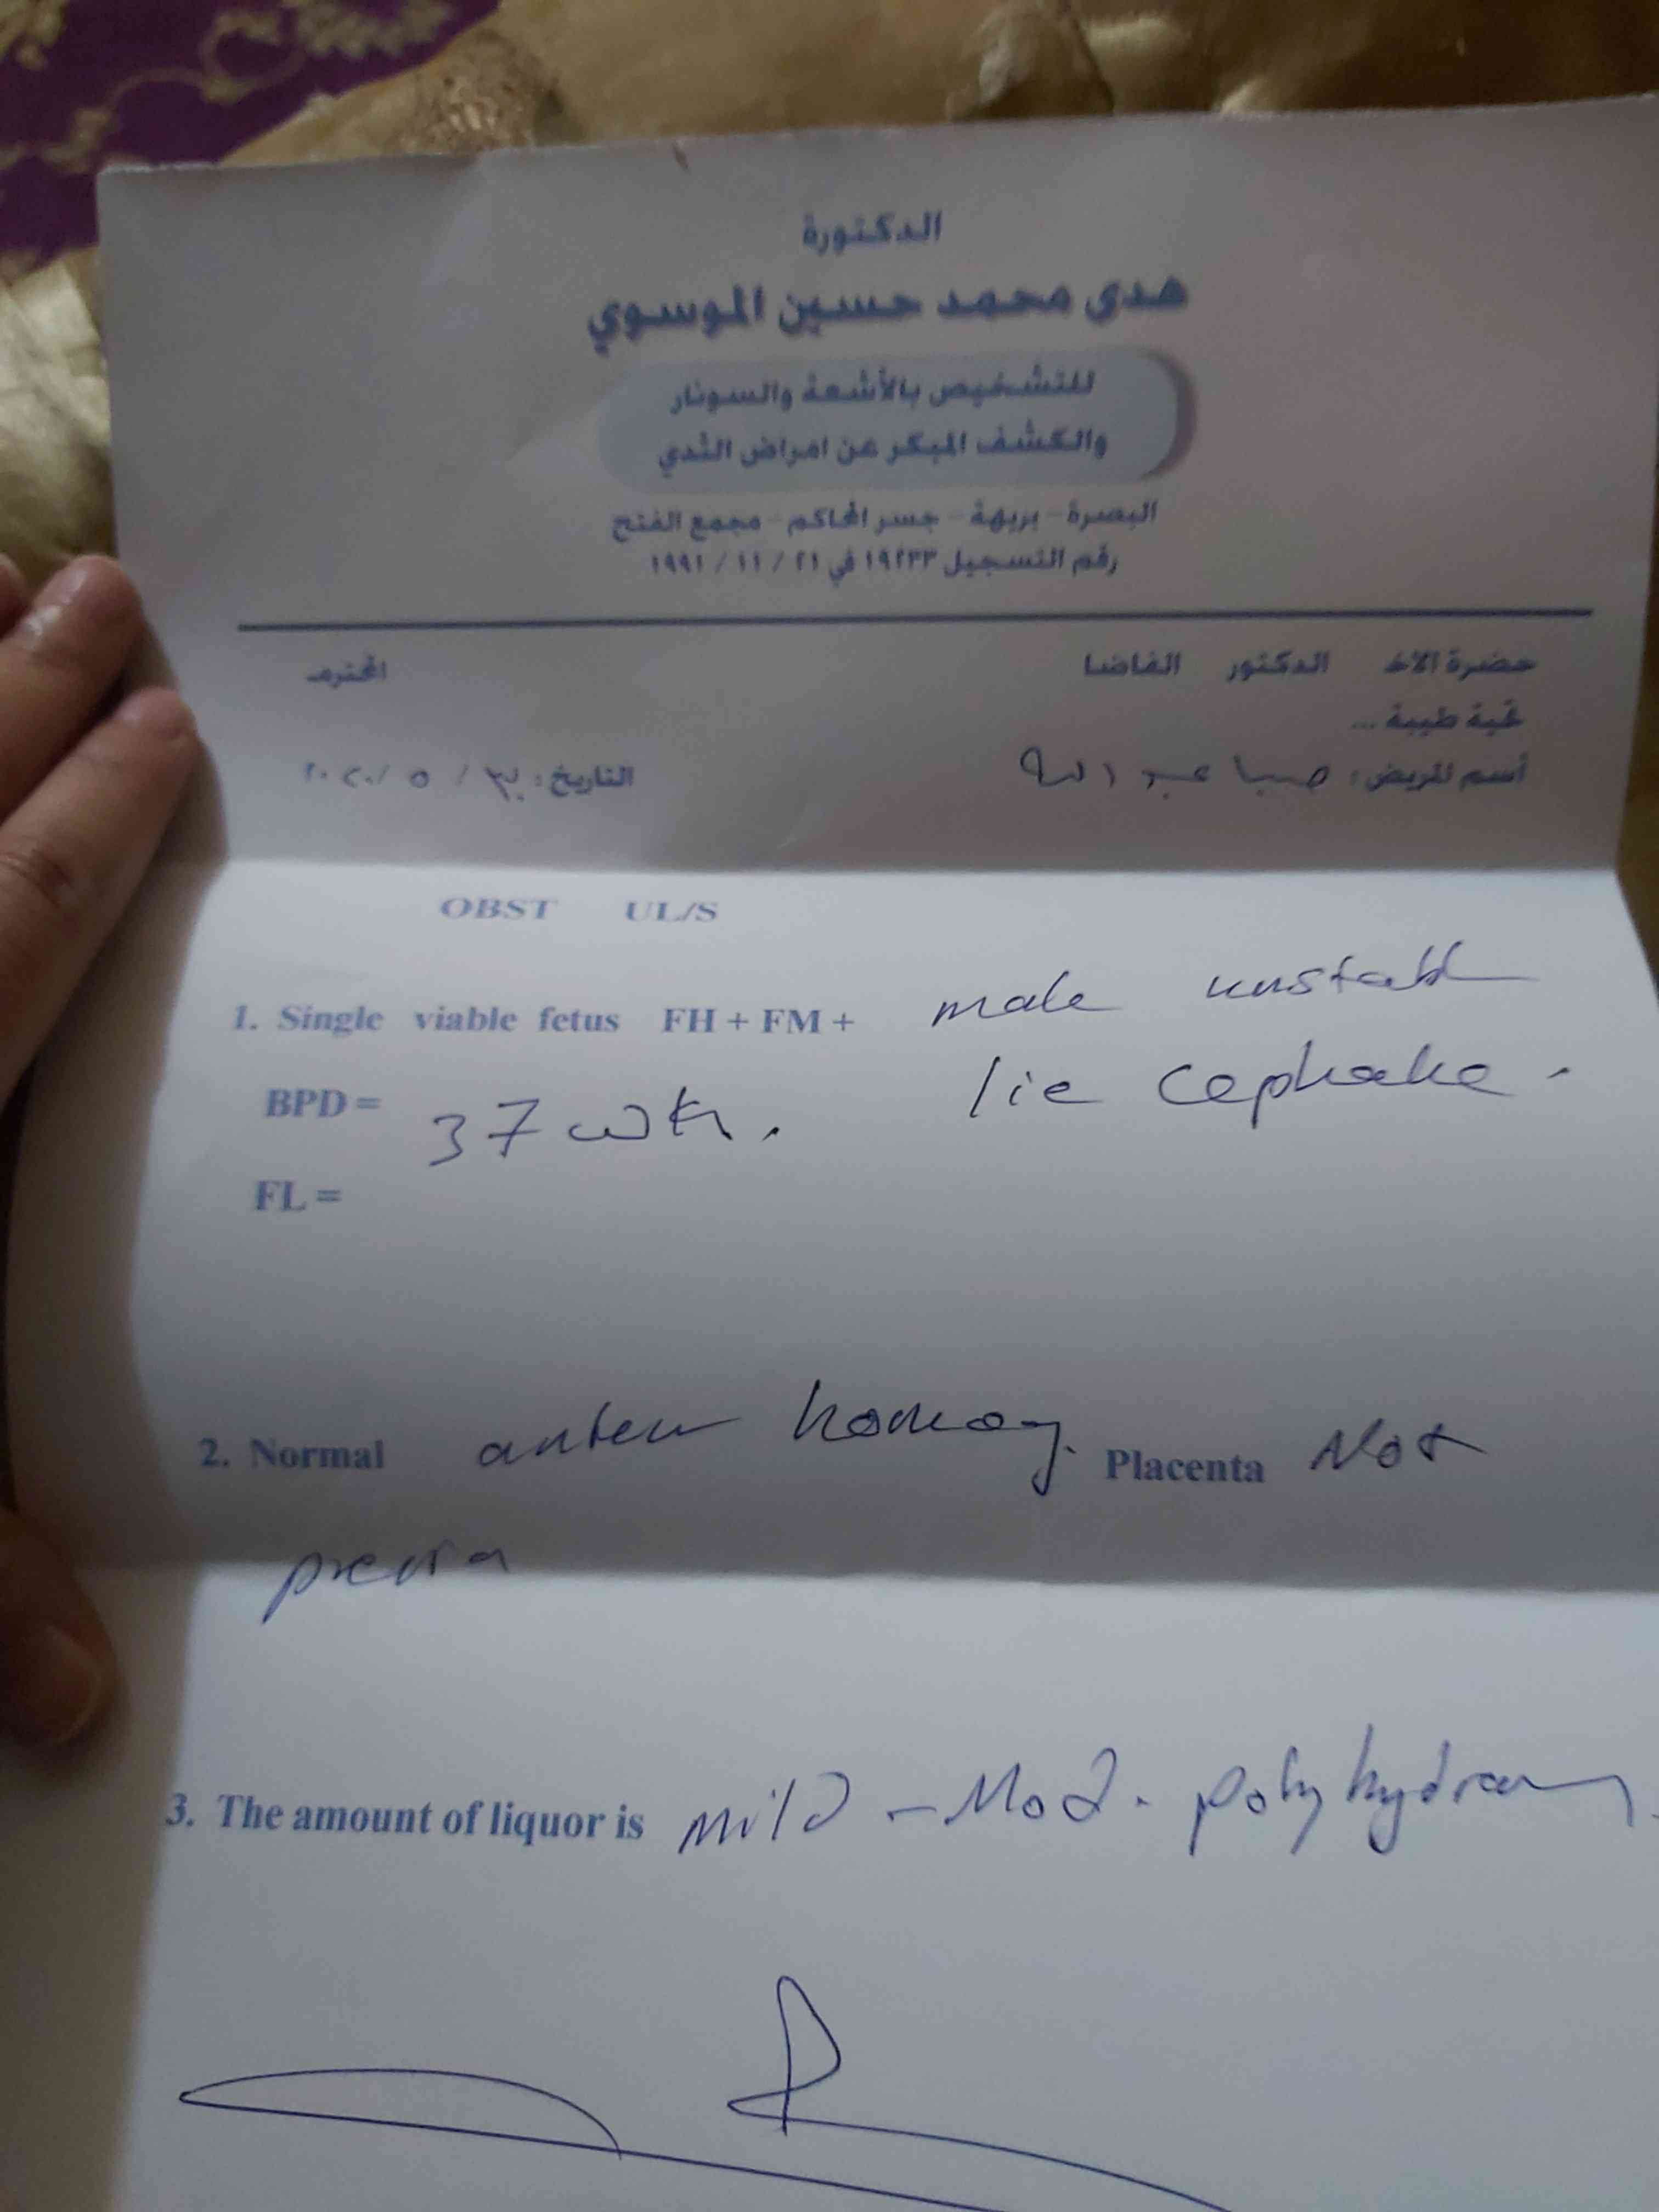 الدكتورة
هدى محمد حسين الموسوي
للتشخيص بالأشعة والسونار
والكشف المبكر عن امراض الثدي
البصرة - بريهة - جسر الحاكم - مجمع الفتح
رقم التسجيل ١٩٢٣٣ في ٢١ / ١١ / ١٩٩١
حضرة الاخ الدكتور الفاضل المحترم
تحية طيبة ...
أسم المريض : صبا عبد الله التاريخ : / ٥ / ٢٠٢٠
OBST UL/S
1. Single viable fetus FH + FM + male unstable
lie cephalic.
BPD = 37 wk.
FL =
2. Normal anterior homog. Placenta Not
previa
3. The amount of liquor is mild - Mod. polyhydram